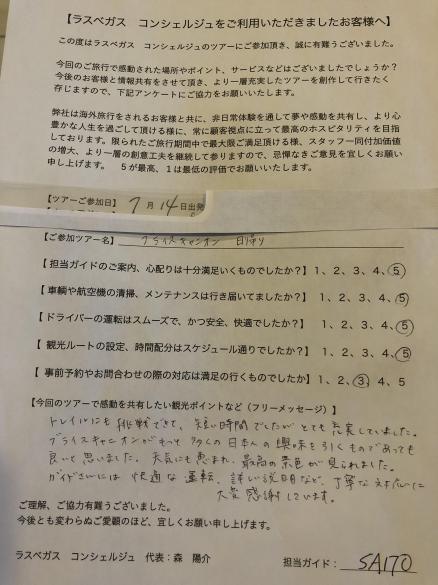 【ラスベガス　コンシェルジュをご利用いただきましたお客様へ】
この度はラスベガス　コンシェルジュのツアーにご参加頂き、誠に有難うございました。
今回のご旅行で感動された場所やポイント、サービスなどはございましたでしょうか？
今後のお客様と情報共有をさせて頂き、より一層充実したツアーを創作して行きたく
存じますので、下記アンケートにご協力をお願いいたします。
弊社は海外旅行をされるお客様と共に、非日常体験を通して夢や感動を共有し、より心
豊かな人生を過ごして頂ける様に、常に顧客視点に立って最高のホスピタリティを目指
しております。限られたご旅行期間中で最大限ご満足頂ける様、スタッフ一同付加価値
の増大、より一層の創意工夫を継続して参りますので、忌憚なきご意見を宜しくお願い
申し上げます。　５が最高、１は最低の評価でお願いいたします。
【ツアーご参加日】 7月14日出発
【ご参加ツアー名】 ブライスキャニオン 日帰り
【 担当ガイドのご案内、心配りは十分満足いくものでしたか？】 1、2、3、4、5
【 車輌や航空機の清掃、メンテナンスは行き届いてましたか？】 1、2、3、4、5
【 ドライバーの運転はスムーズで、かつ安全、快適でしたか？】 1、2、3、4、5
【 観光ルートの設定、時間配分はスケジュール通りでしたか？】 1、2、3、4、5
【 事前予約やお問合わせの際の対応は満足の行くものでしたか】 1、2、3、4、5
【今回のツアーで感動を共有したい観光ポイントなど（フリーメッセージ）】
トレイルにも挑戦できて、短い時間でしたがとても充実していました。
ブライスキャニオンがもっと多くの日本人の興味を引くものであっても
良いと思いました。天気にも恵まれ、最高の景色が見られました。
ガイドさんには快適な運転、詳しい説明など、丁寧な対応に
大変感謝しています。
ご理解、ご協力有難うございました。
今後とも変わらぬご愛顧のほど、宜しくお願い申し上げます。
ラスベガス　コンシェルジュ　代表：森　陽介
担当ガイド： SA170